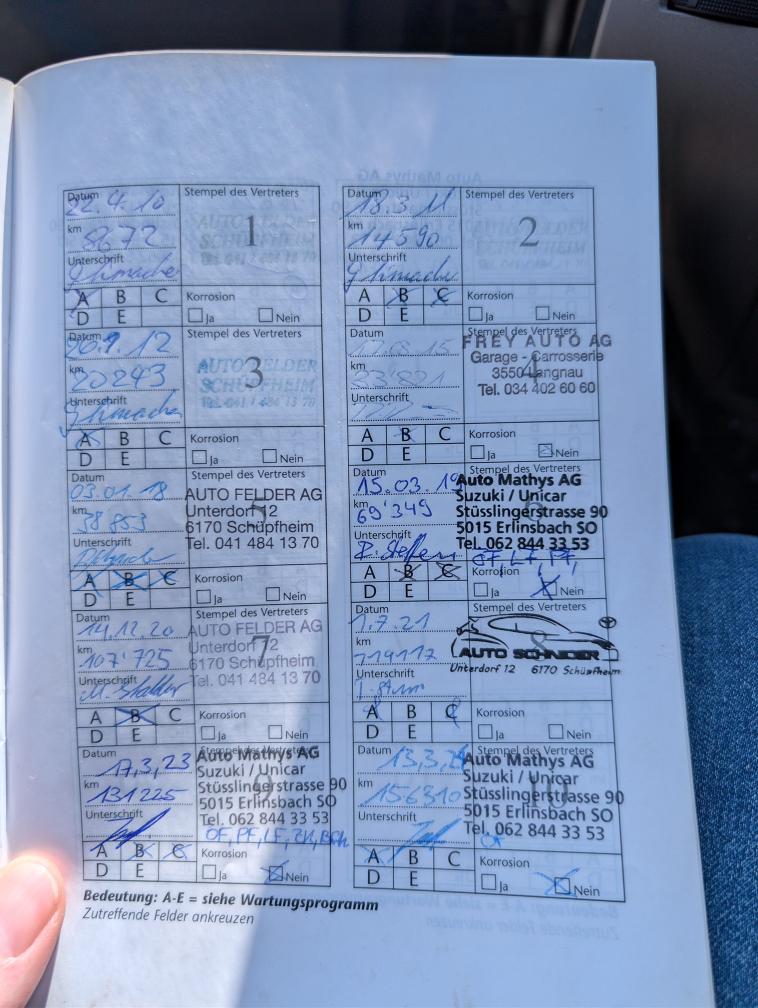 Datum 22.4.10
Stempel des Vertreters
km 8672
AUTO FELDER
SCHÜPFHEIM
Tel. 041 / 484 13 70
1
Unterschrift
A B C
D E
Korrosion
Ja Nein
Datum 18.3.11
Stempel des Vertreters
km 14590
2
Unterschrift
A B C
D E
Korrosion
Ja Nein
Datum 20.9.12
Stempel des Vertreters
km 20243
AUTO FELDER
SCHÜPFHEIM
Tel. 041 / 484 13 70
3
Unterschrift
A B C
D E
Korrosion
Ja Nein
Datum
Stempel des Vertreters
FREY AUTO AG
Garage - Carrosserie
3550 Langnau
Tel. 034 402 60 60
4
km
Unterschrift
A B C
D E
Korrosion
Ja Nein
Datum 03.01.18
Stempel des Vertreters
AUTO FELDER AG
Unterdorf 12
6170 Schüpfheim
Tel. 041 484 13 70
5
km 38853
Unterschrift
A B C
D E
Korrosion
Ja Nein
Datum 15.03.19
Stempel des Vertreters
Auto Mathys AG
Suzuki / Unicar
Stüsslingerstrasse 90
5015 Erlinsbach SO
Tel. 062 844 33 53
km 69'349
Unterschrift
A B C
D E
Korrosion
Ja Nein
Datum 14.12.20
Stempel des Vertreters
AUTO FELDER AG
Unterdorf 12
6170 Schüpfheim
Tel. 041 484 13 70
7
km 107'725
Unterschrift
A B C
D E
Korrosion
Ja Nein
Datum 1.7.21
Stempel des Vertreters
8
km
AUTO SCHNIDER
Unterdorf 12 6170 Schüpfheim
Unterschrift
A B C
D E
Korrosion
Ja Nein
Datum 17,3,23
Stempel des Vertreters
Auto Mathys AG
Suzuki / Unicar
Stüsslingerstrasse 90
5015 Erlinsbach SO
Tel. 062 844 33 53
9
km 131225
Unterschrift
OF, PF, LF,
A B C
D E
Korrosion
Ja Nein
Datum 13,3,24
Stempel des Vertreters
Auto Mathys AG
Suzuki / Unicar
Stüsslingerstrasse 90
5015 Erlinsbach SO
Tel. 062 844 33 53
10
km 156310
Unterschrift
A B C
D E
Korrosion
Ja Nein
Bedeutung: A-E = siehe Wartungsprogramm
Zutreffende Felder ankreuzen